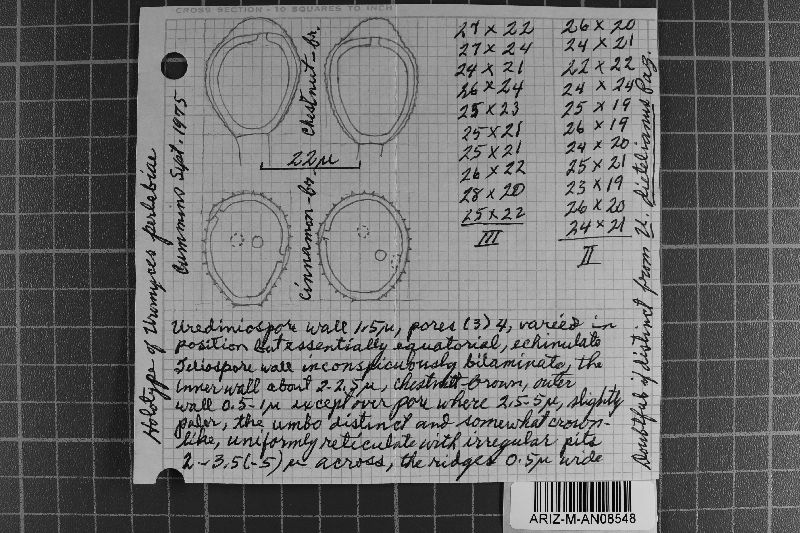 CROSS SECTION - 10 SQUARES TO INCH
Holotype of Uromyces perlebiae
Cummins Sept. 1975
Chestnut-br.
22µ
Cinnamon-br.
27 x 22
27 x 24
24 x 21
26 x 24
25 x 23
25 x 21
25 x 21
26 x 22
28 x 20
25 x 22
III
26 x 20
24 x 21
22 x 22
24 x 24
25 x 19
26 x 19
24 x 20
25 x 21
23 x 19
26 x 20
24 x 21
II
Doubtful if distinct from U. dietelianus Paz.
Urediniospore wall 1.5µ, pores (3) 4, varied in
position but essentially equatorial, echinulate
Teliospore wall inconspicuously bilaminate, the
inner wall about 2-2.5µ, chestnut-brown, outer
wall 0.5-1µ except over pore where 2.5-5µ, slightly
paler, the umbo distinct and somewhat crown-
like, uniformly reticulate with irregular pits
2-3.5(-5)µ across, the ridges 0.5µ wide
ARIZ-M-AN08548